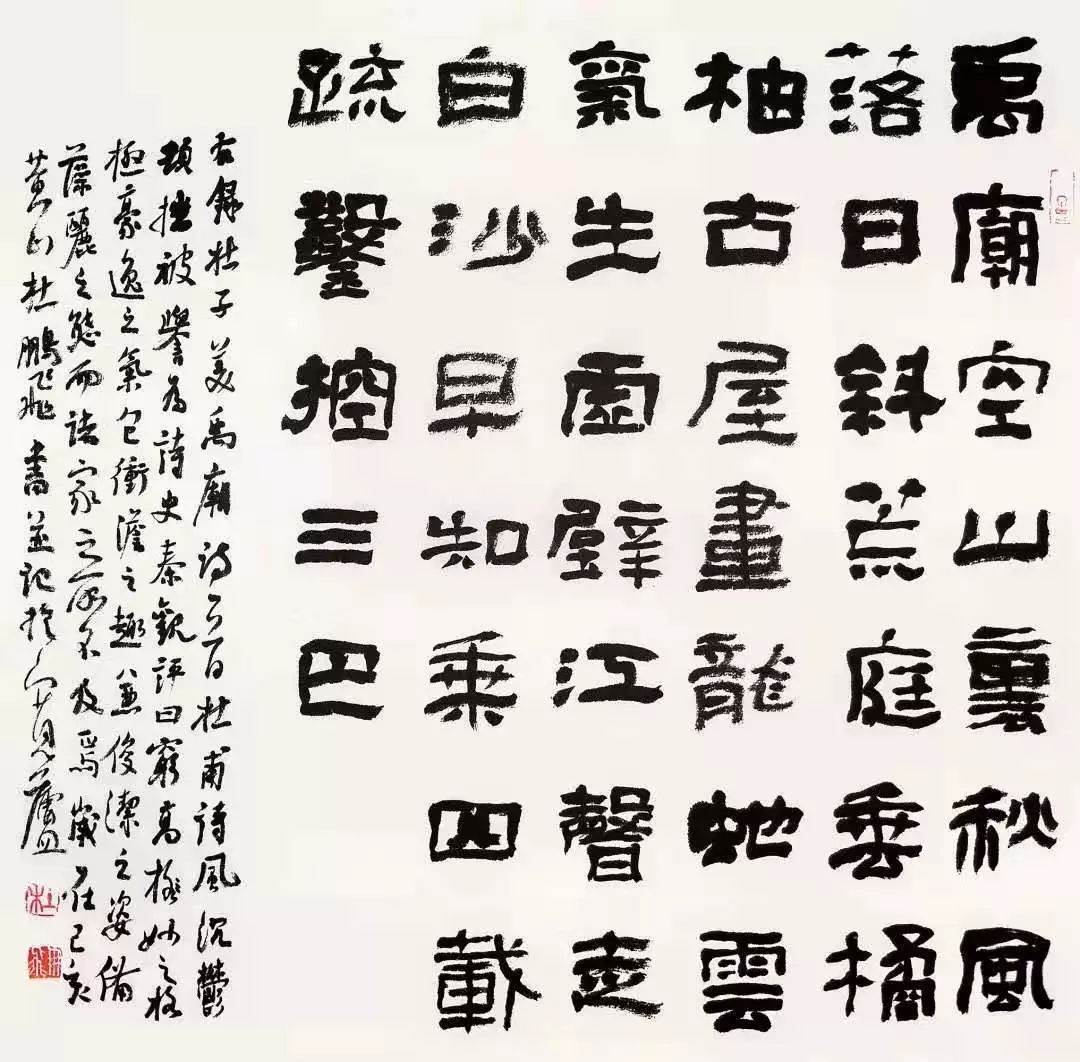 禹廟空山裏秋風
落日斜荒庭垂橘
柚古屋畫龍蛇雲
氣生虛壁江聲走
白沙早知乘四載
疏鑿控三巴
右錄杜子美禹廟詩一首杜甫詩風沉鬱
頓挫被譽為詩史秦觀評曰窮高極妙之格
極豪逸之氣包衝澹之趣兼俊潔之姿備
藻麗之態而諸家之所不及焉歲在己亥
黃山杜鵬飛書並記於見廬